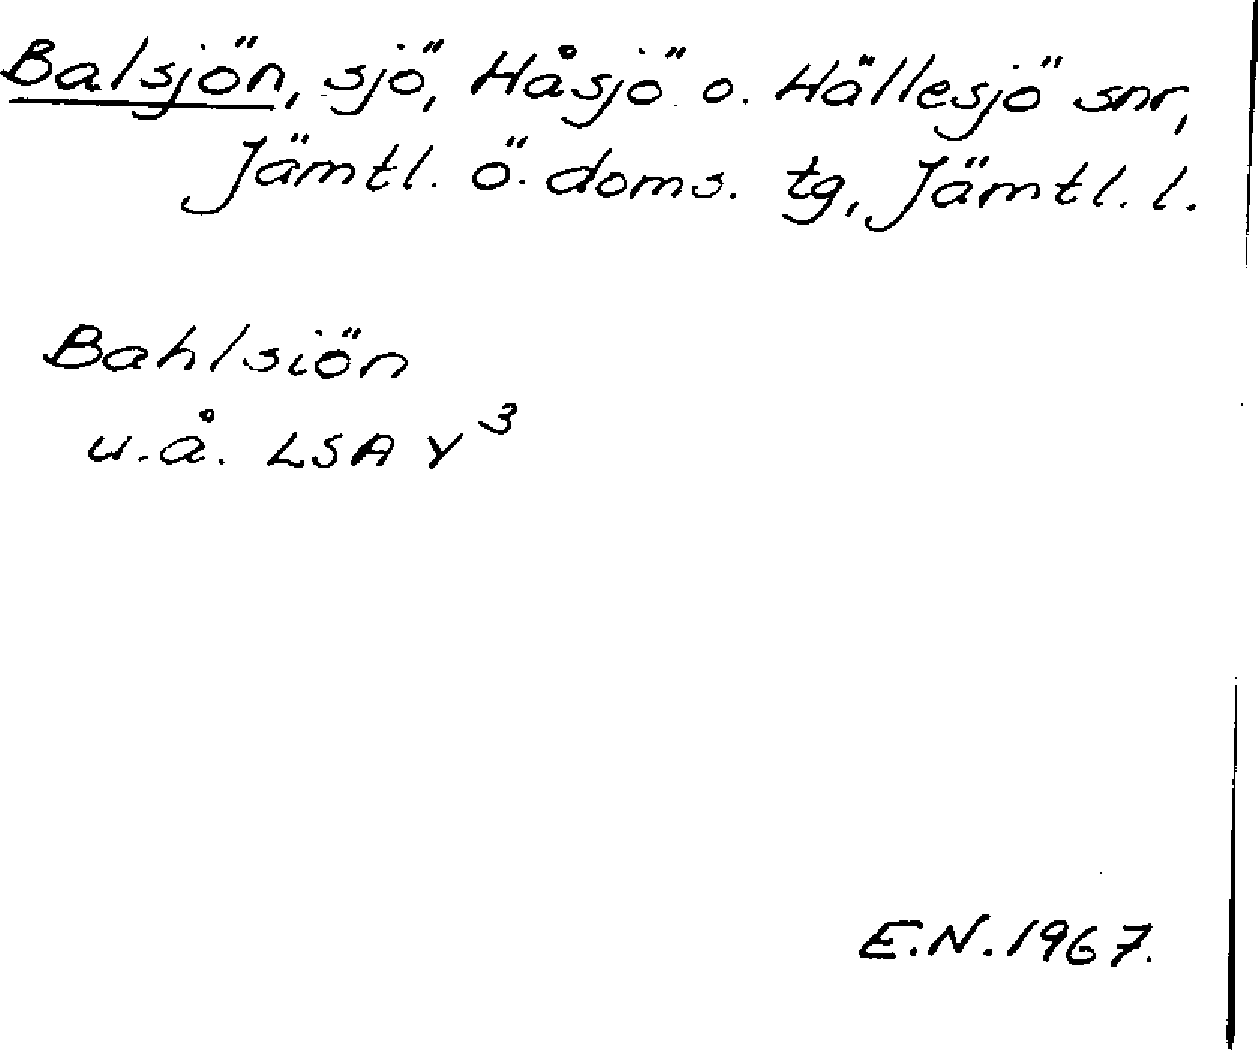 Balsjön, sjö, Håsjö o. Hällesjö snr,
Jämtl. ö. doms. tg, Jämtl. l.
Bahlsiön
u.å. LSA Y³
E.N. 1967.